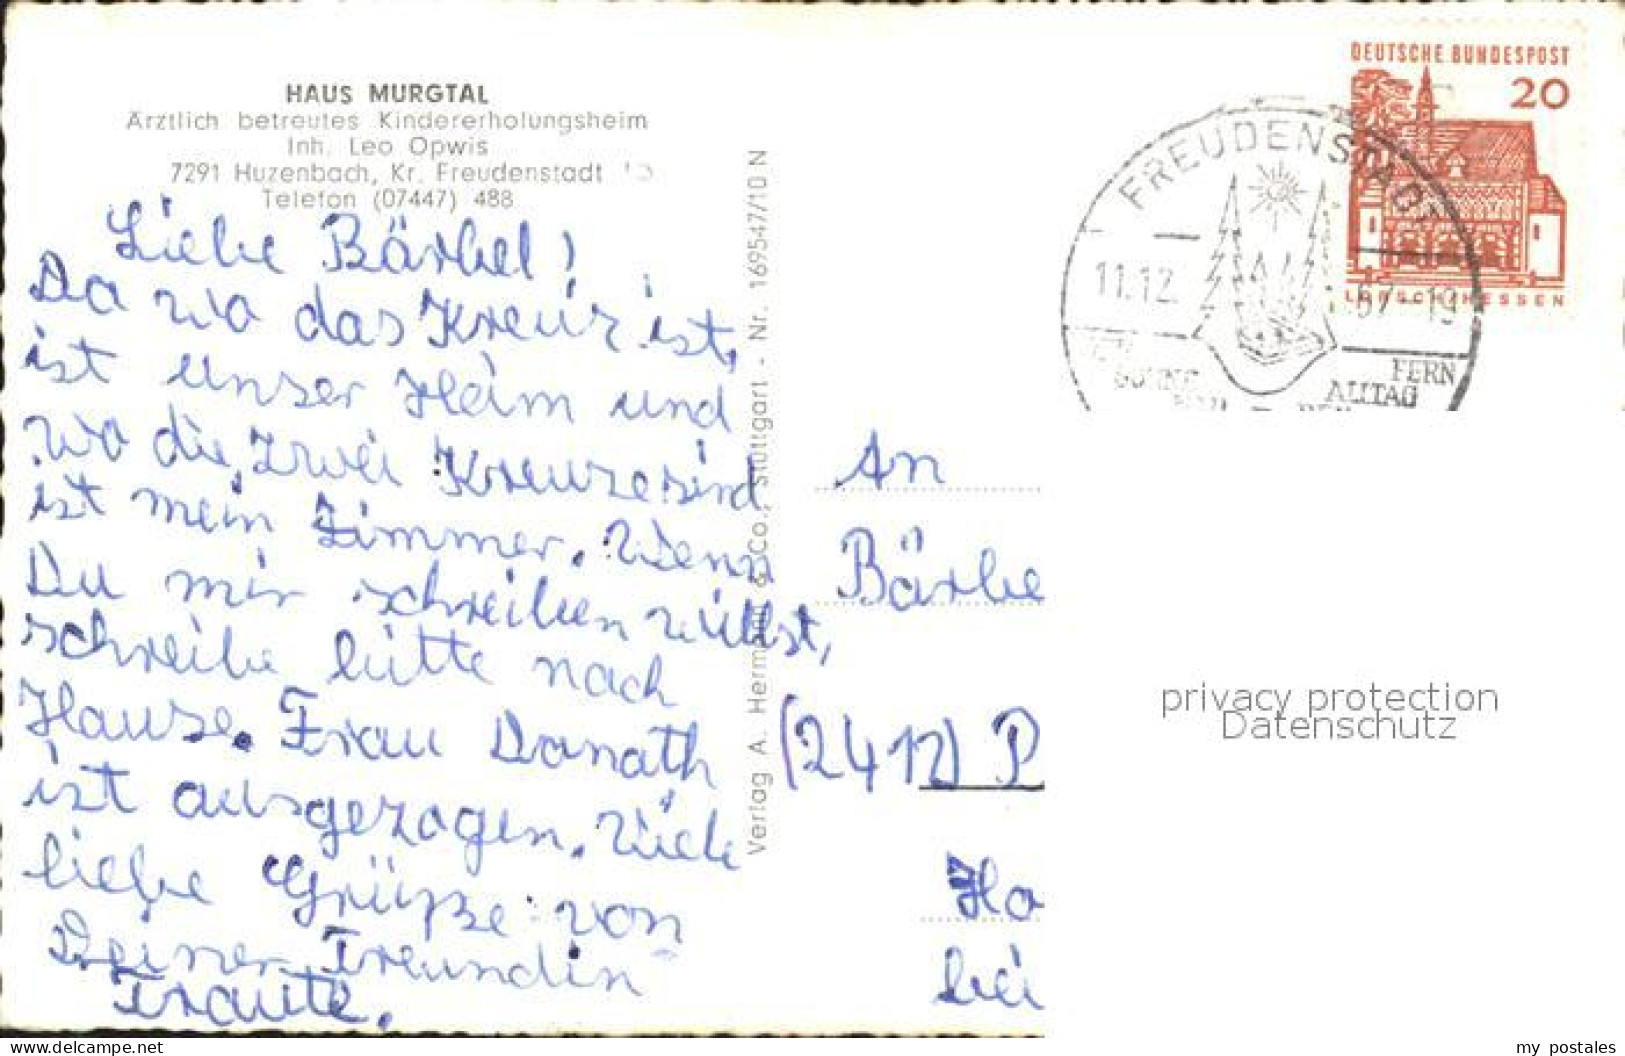 HAUS MURGTAL
Ärztlich betreutes Kindererholungsheim
Inh. Leo Opwis
7291 Huzenbach, Kr. Freudenstadt
Telefon (07447) 488
Liebe Bärbel!
Da wo das Kreuz ist,
ist unser Heim und
wo die zwei Kreuze sind
ist mein Zimmer. Wenn
Du mir schreiben willst,
schreibe bitte nach
Hause. Frau Donath
ist ausgezogen. Viele
liebe Grüße von
Deiner Freundin
Traute.
Verlag A. Hermann & Co., Stuttgart - Nr. 169547/10 N
DEUTSCHE BUNDESPOST
20
LORSCH/HESSEN
FREUDENSTADT
11.12. 67-19
FERN
ALLTAG
An
Bärbe
(2412) P
Ho
bei
privacy protection
Datenschutz
delcampe.net
my_postales